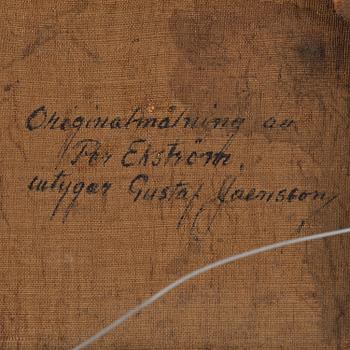 Originalmålning av
Per Ekström,
intygar Gustaf Jaensson